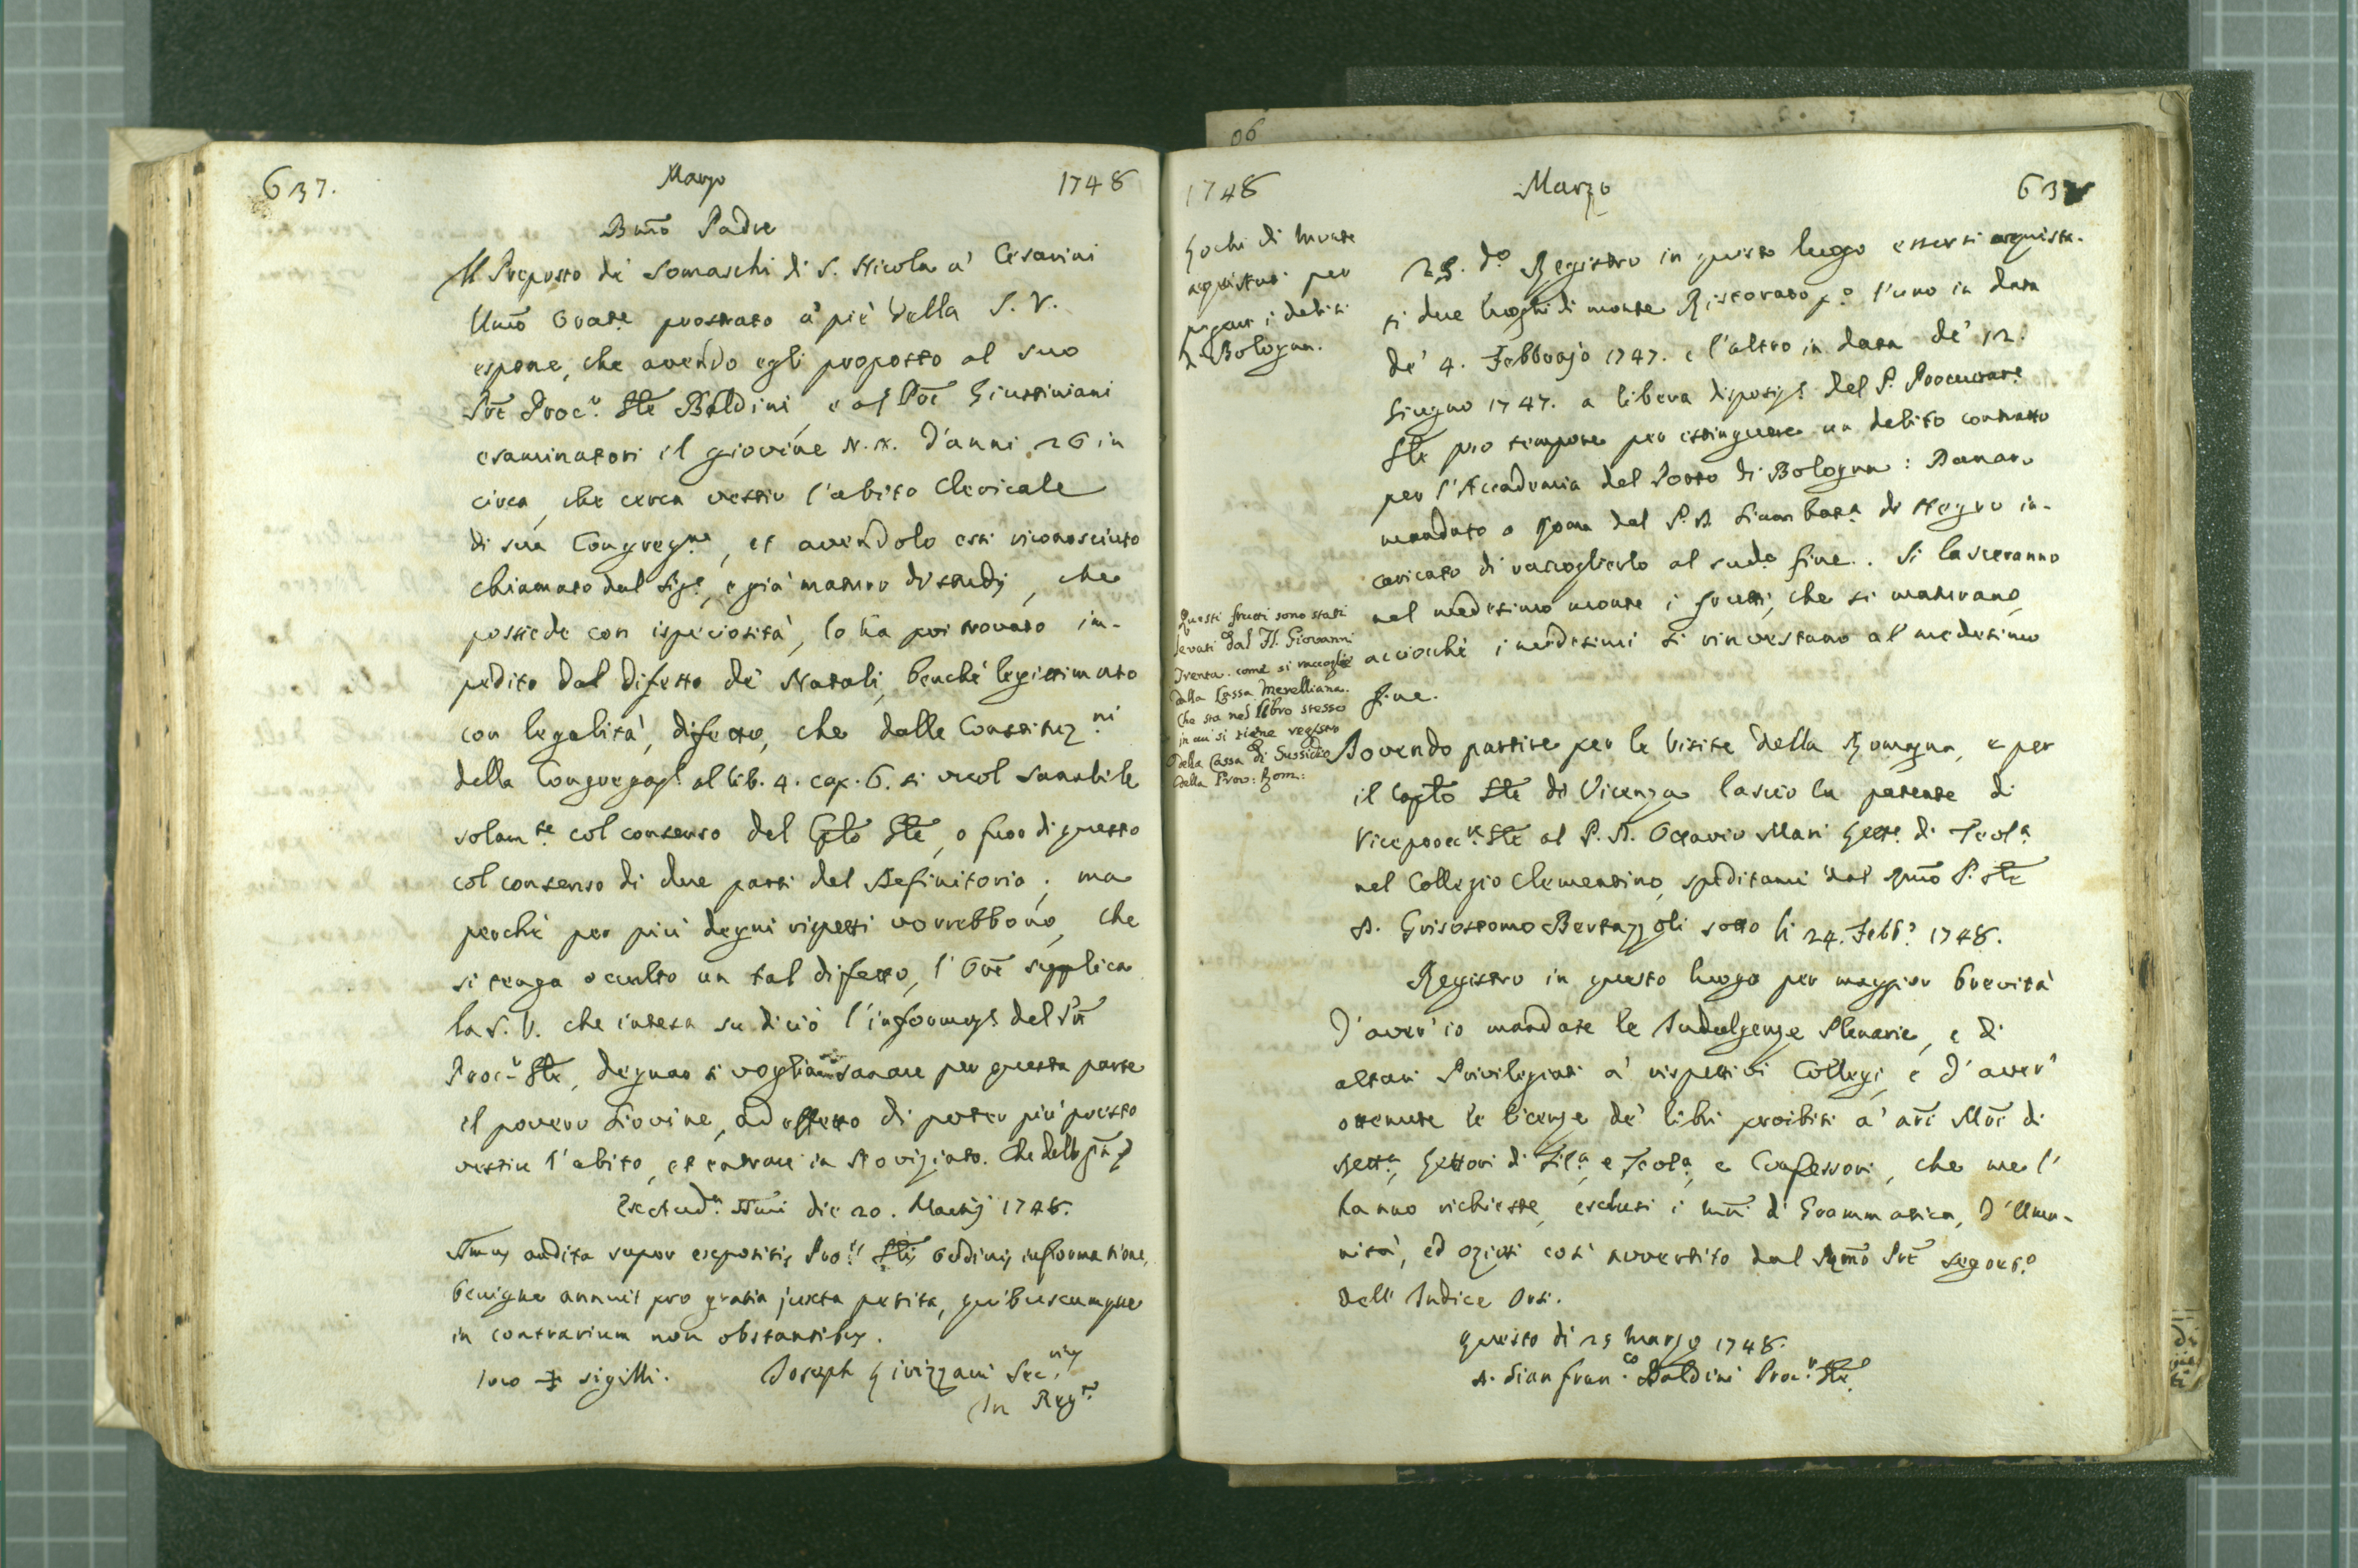 637. Marzo 1748
Bmo Padre
Il Preposto de' Somaschi di S. Nicola a' Cesarini
Umo Orate prostrato a' piè della S. V.
espone, che avendo egli proposto al suo
Pre Procr. Gle Baldini, e al Pre Giustiniani
esaminatori il giovine N. N. d'anni 26 in
circa, che cerca vestir l'abito Clericale
di sua Congregne, et avendolo essi riconosciuto
chiamato dal Sige, e già maturo di studj, che
possiede con ispeciosità, lo ha poi trovato im-
pedito dal difetto de' Natali, benchè legittimato
con legalità, difetto, che dalle Constituzni
della Congregaze al lib. 4. cap. 6. si vuol sanabile
solamte col consenso del Cplo Gle, o fuor di questo
col consenso di due parti del Definitorio; ma
perchè per più degni rispetti vorrebbono, che
si tenga occulto un tal difetto, l'Ore supplica
la S. V. che intesa su di ciò l'informaze del Pre
Procr Gle, degnar si voglia sanare per questa parte
il povero Giovine, ad effetto di poter più presto
vestir l'abito, et entrare in Noviziato. Che della
die 20. Martij 1748.
audita super expositis Procris Glis Ordinis informatione,
benigne annuit pro gratia juxta petita, quibuscumque
in contrarium non obstantibus.
loco ✠ sigilli. Joseph Livizzani Secrius
In Regro
1748 Marzo 63
Lochi di Monte
acquistati per
pagar i debiti
di Bologna.
25. do Registro in questo luogo essersi acquista-
ti due luoghi di monte Ristorato po l'uno in data
de' 4. Febbrajo 1747. e l'altro in data de' 12.
Giugno 1747. a libera disposize del P. Procurare
Gle pro tempore per estinguere un debito contratto
per l'Accademia del Porto di Bologna: Danaro
mandato a Roma dal P. D. Giam Bata di Negro in-
caricato di raccoglierlo al sudo fine. Si lasceranno
nel medesimo monte i frutti, che si maturano,
acciochè i medesimi si rinvestano al medesimo
fine.
Questi frutti sono stati
levati dal P. Giovanni
Trenta. come si raccoglie
dalla Cassa Merelliana.
che sta nel libro stesso
in cui si tiene registro
della Cassa di Sussidio
della Prov: Rom:
Dovendo partire per le visite della Romagna, e per
il Capto Gle di Vicenza lascio la patente di
Viceprocre Gle al P. D. Ottavio Mari Lette di Teola
nel Collegio Clementino, speditami dal Rmo P. Gle
D. Grisostomo Bertazzoli sotto li 24. Febbo 1748.
Registro in questo luogo per maggior brevità
d'aver'io mandate le Indulgenze Plenarie, e di
altari Privilegiati a' rispettivi Collegi, e d'aver'
ottenute le licenze de' libri proibiti a' Mri di
Retta, Lettori di Fila, e Teola, e Confessori, che me l'
hanno richieste, esclusi i mri di Grammatica, d'Uma-
nità, ed oziosi così avvertito dal Rmo Pre Segreto
dell'Indice Orsi.
questo dì 29 marzo 1748.
D. Gian Franco Baldini Procr. Gle